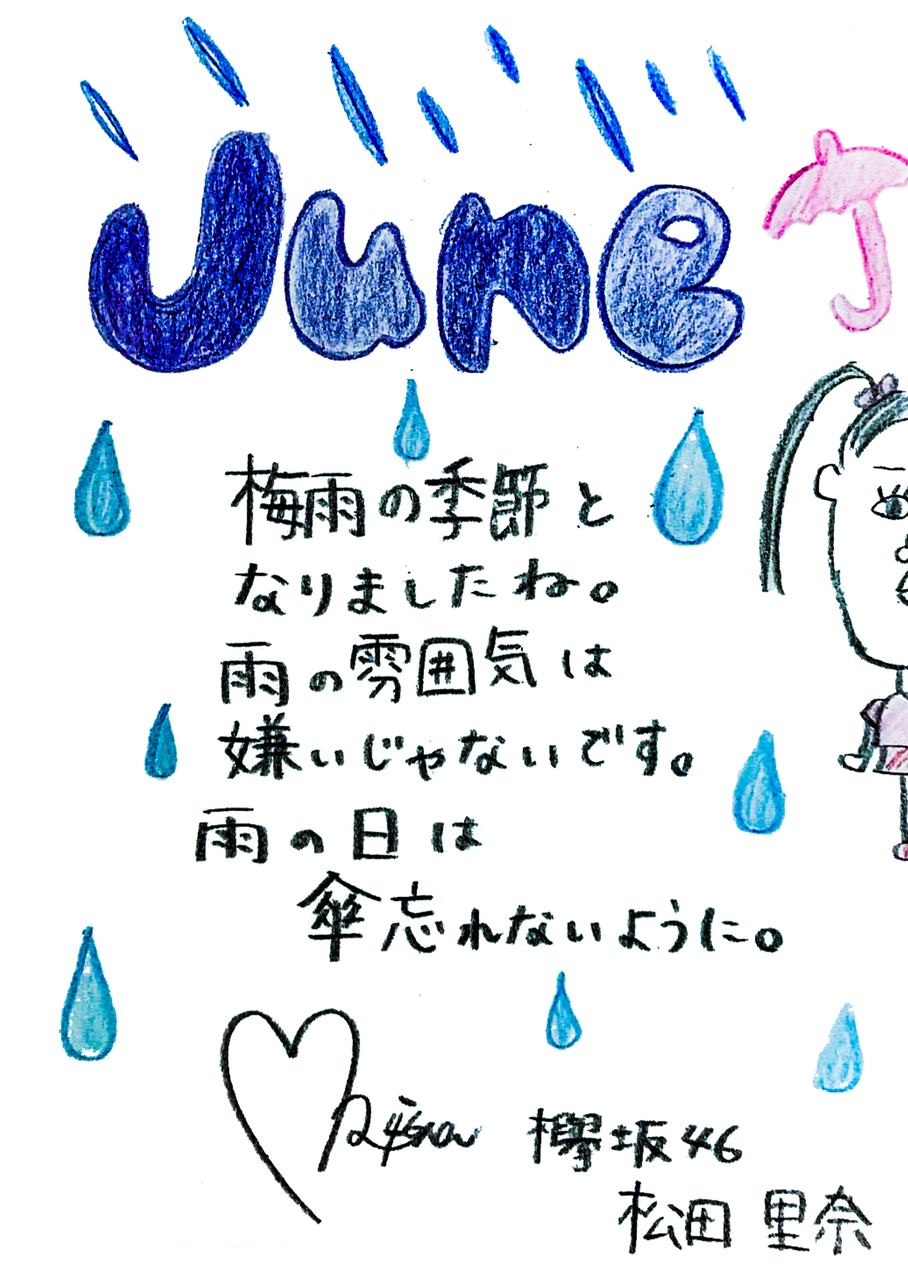 June
梅雨の季節と
なりましたね。
雨の雰囲気は
嫌いじゃないです。
雨の日は
傘忘れないように。
欅坂46
松田 里奈